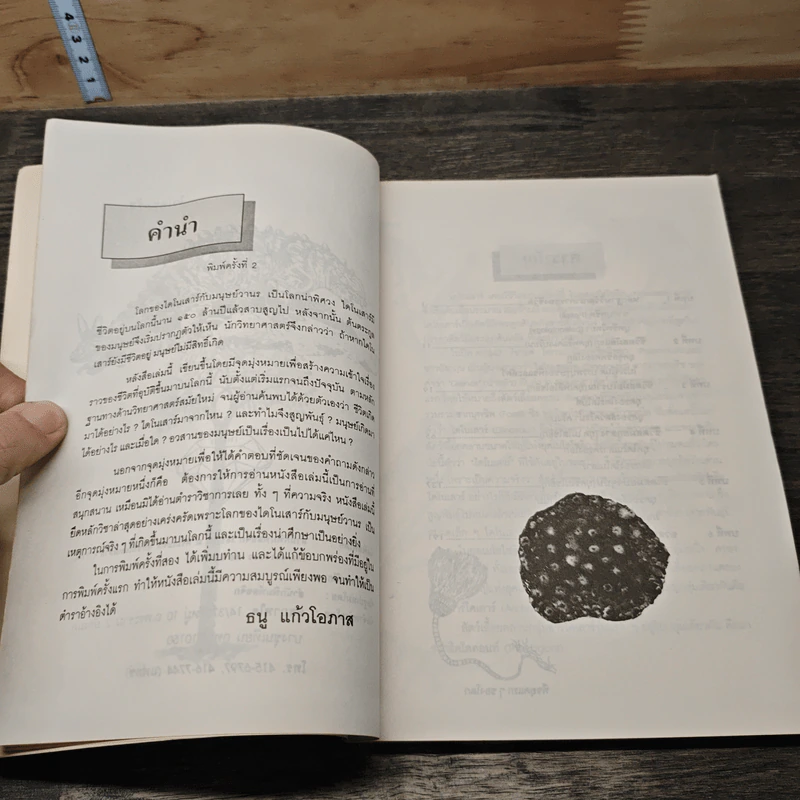 4
3
2
1
คำนำ
พิมพ์ครั้งที่ 2
โลกของไดโนเสาร์กับมนุษย์วานร เป็นโลกน่าพิศวง ไดโนเสาร์มี
ชีวิตอยู่บนโลกนี้นาน ๑๕๐ ล้านปีแล้วสาบสูญไป หลังจากนั้น ต้นตระกูล
ของมนุษย์จึงเริ่มปรากฏตัวให้เห็น นักวิทยาศาสตร์จึงกล่าวว่า ถ้าหากไดโน
เสาร์ยังมีชีวิตอยู่ มนุษย์ไม่มีสิทธิ์เกิด
หนังสือเล่มนี้ เขียนขึ้นโดยมีจุดมุ่งหมายเพื่อสร้างความเข้าใจเรื่อง
ราวของชีวิตที่อุบัติขึ้นมาบนโลกนี้ นับตั้งแต่เริ่มแรกจนถึงปัจจุบัน ตามหลัก
ฐานทางด้านวิทยาศาสตร์สมัยใหม่ จนผู้อ่านค้นพบได้ด้วยตัวเองว่า ชีวิตเกิด
มาได้อย่างไร ? ไดโนเสาร์มาจากไหน ? และทำไมจึงสูญพันธุ์ ? มนุษย์เกิดมา
ได้อย่างไร และเมื่อใด ? อวสานของมนุษย์เป็นเรื่องเป็นไปได้แค่ไหน ?
นอกจากจุดมุ่งหมายเพื่อให้ได้คำตอบที่ชัดเจนของคำถามดังกล่าว
อีกจุดมุ่งหมายหนึ่งก็คือ ต้องการให้การอ่านหนังสือเล่มนี้เป็นการอ่านที่
สนุกสนาน เหมือนมิได้อ่านตำราวิชาการเลย ทั้ง ๆ ที่ความจริง หนังสือเล่มนี้
ยึดหลักวิชาล่าสุดอย่างเคร่งครัดเพราะโลกของไดโนเสาร์กับมนุษย์วานร เป็น
เหตุการณ์จริง ๆ ที่เกิดขึ้นมาบนโลกนี้ และเป็นเรื่องน่าศึกษาเป็นอย่างยิ่ง
ในการพิมพ์ครั้งที่สอง ได้เพิ่มทบทวน และได้แก้ข้อบกพร่องที่มีอยู่ใน
การพิมพ์ครั้งแรก ทำให้หนังสือเล่มนี้มีความสมบูรณ์เพียงพอ จนทำให้เป็น
ตำราอ้างอิงได้
ธนู แก้วโอภาส